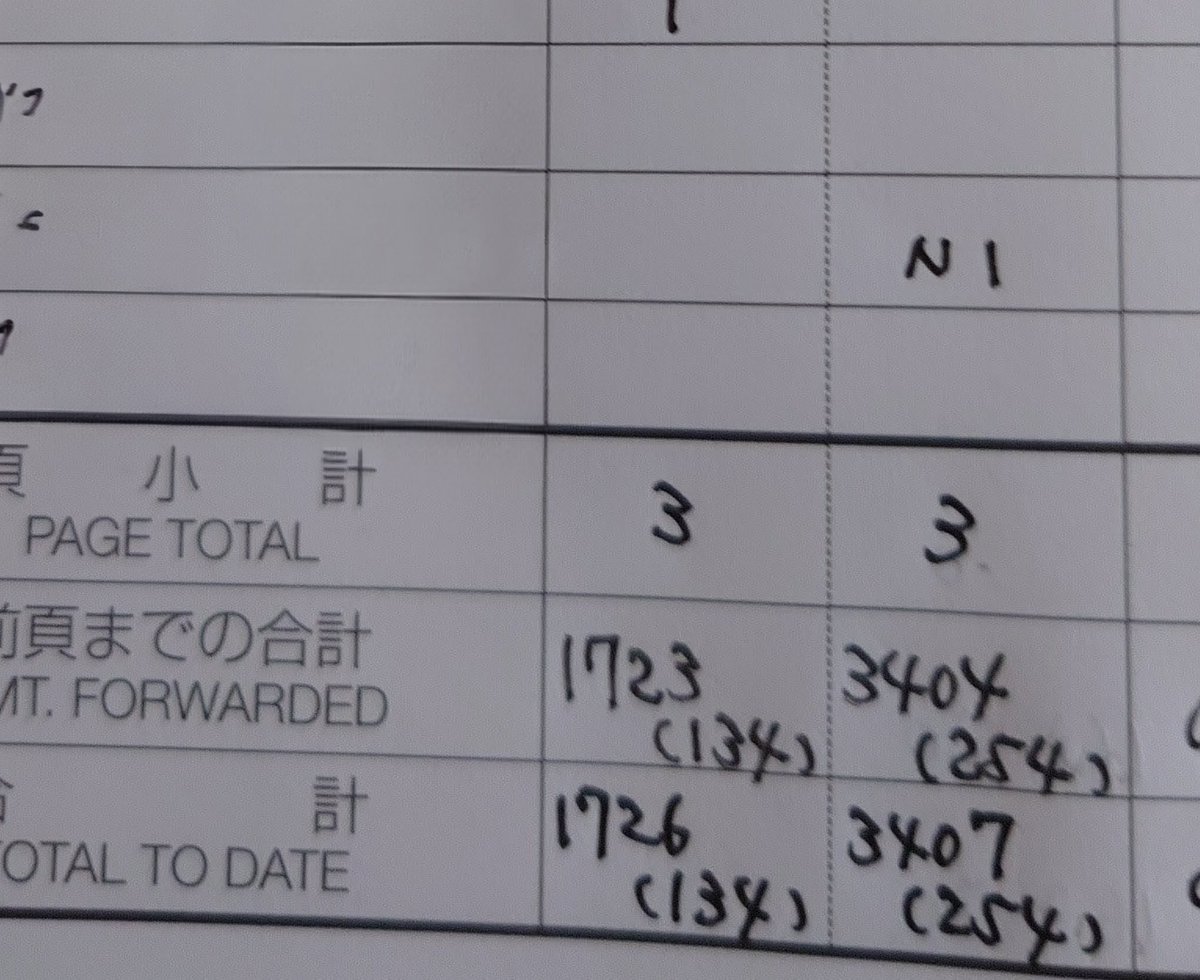 N1
頁 小 計 3 3
PAGE TOTAL
前頁までの合計 1723 3404
MT. FORWARDED (134) (254)
合 計 1726 3407
OTAL TO DATE (134) (254)